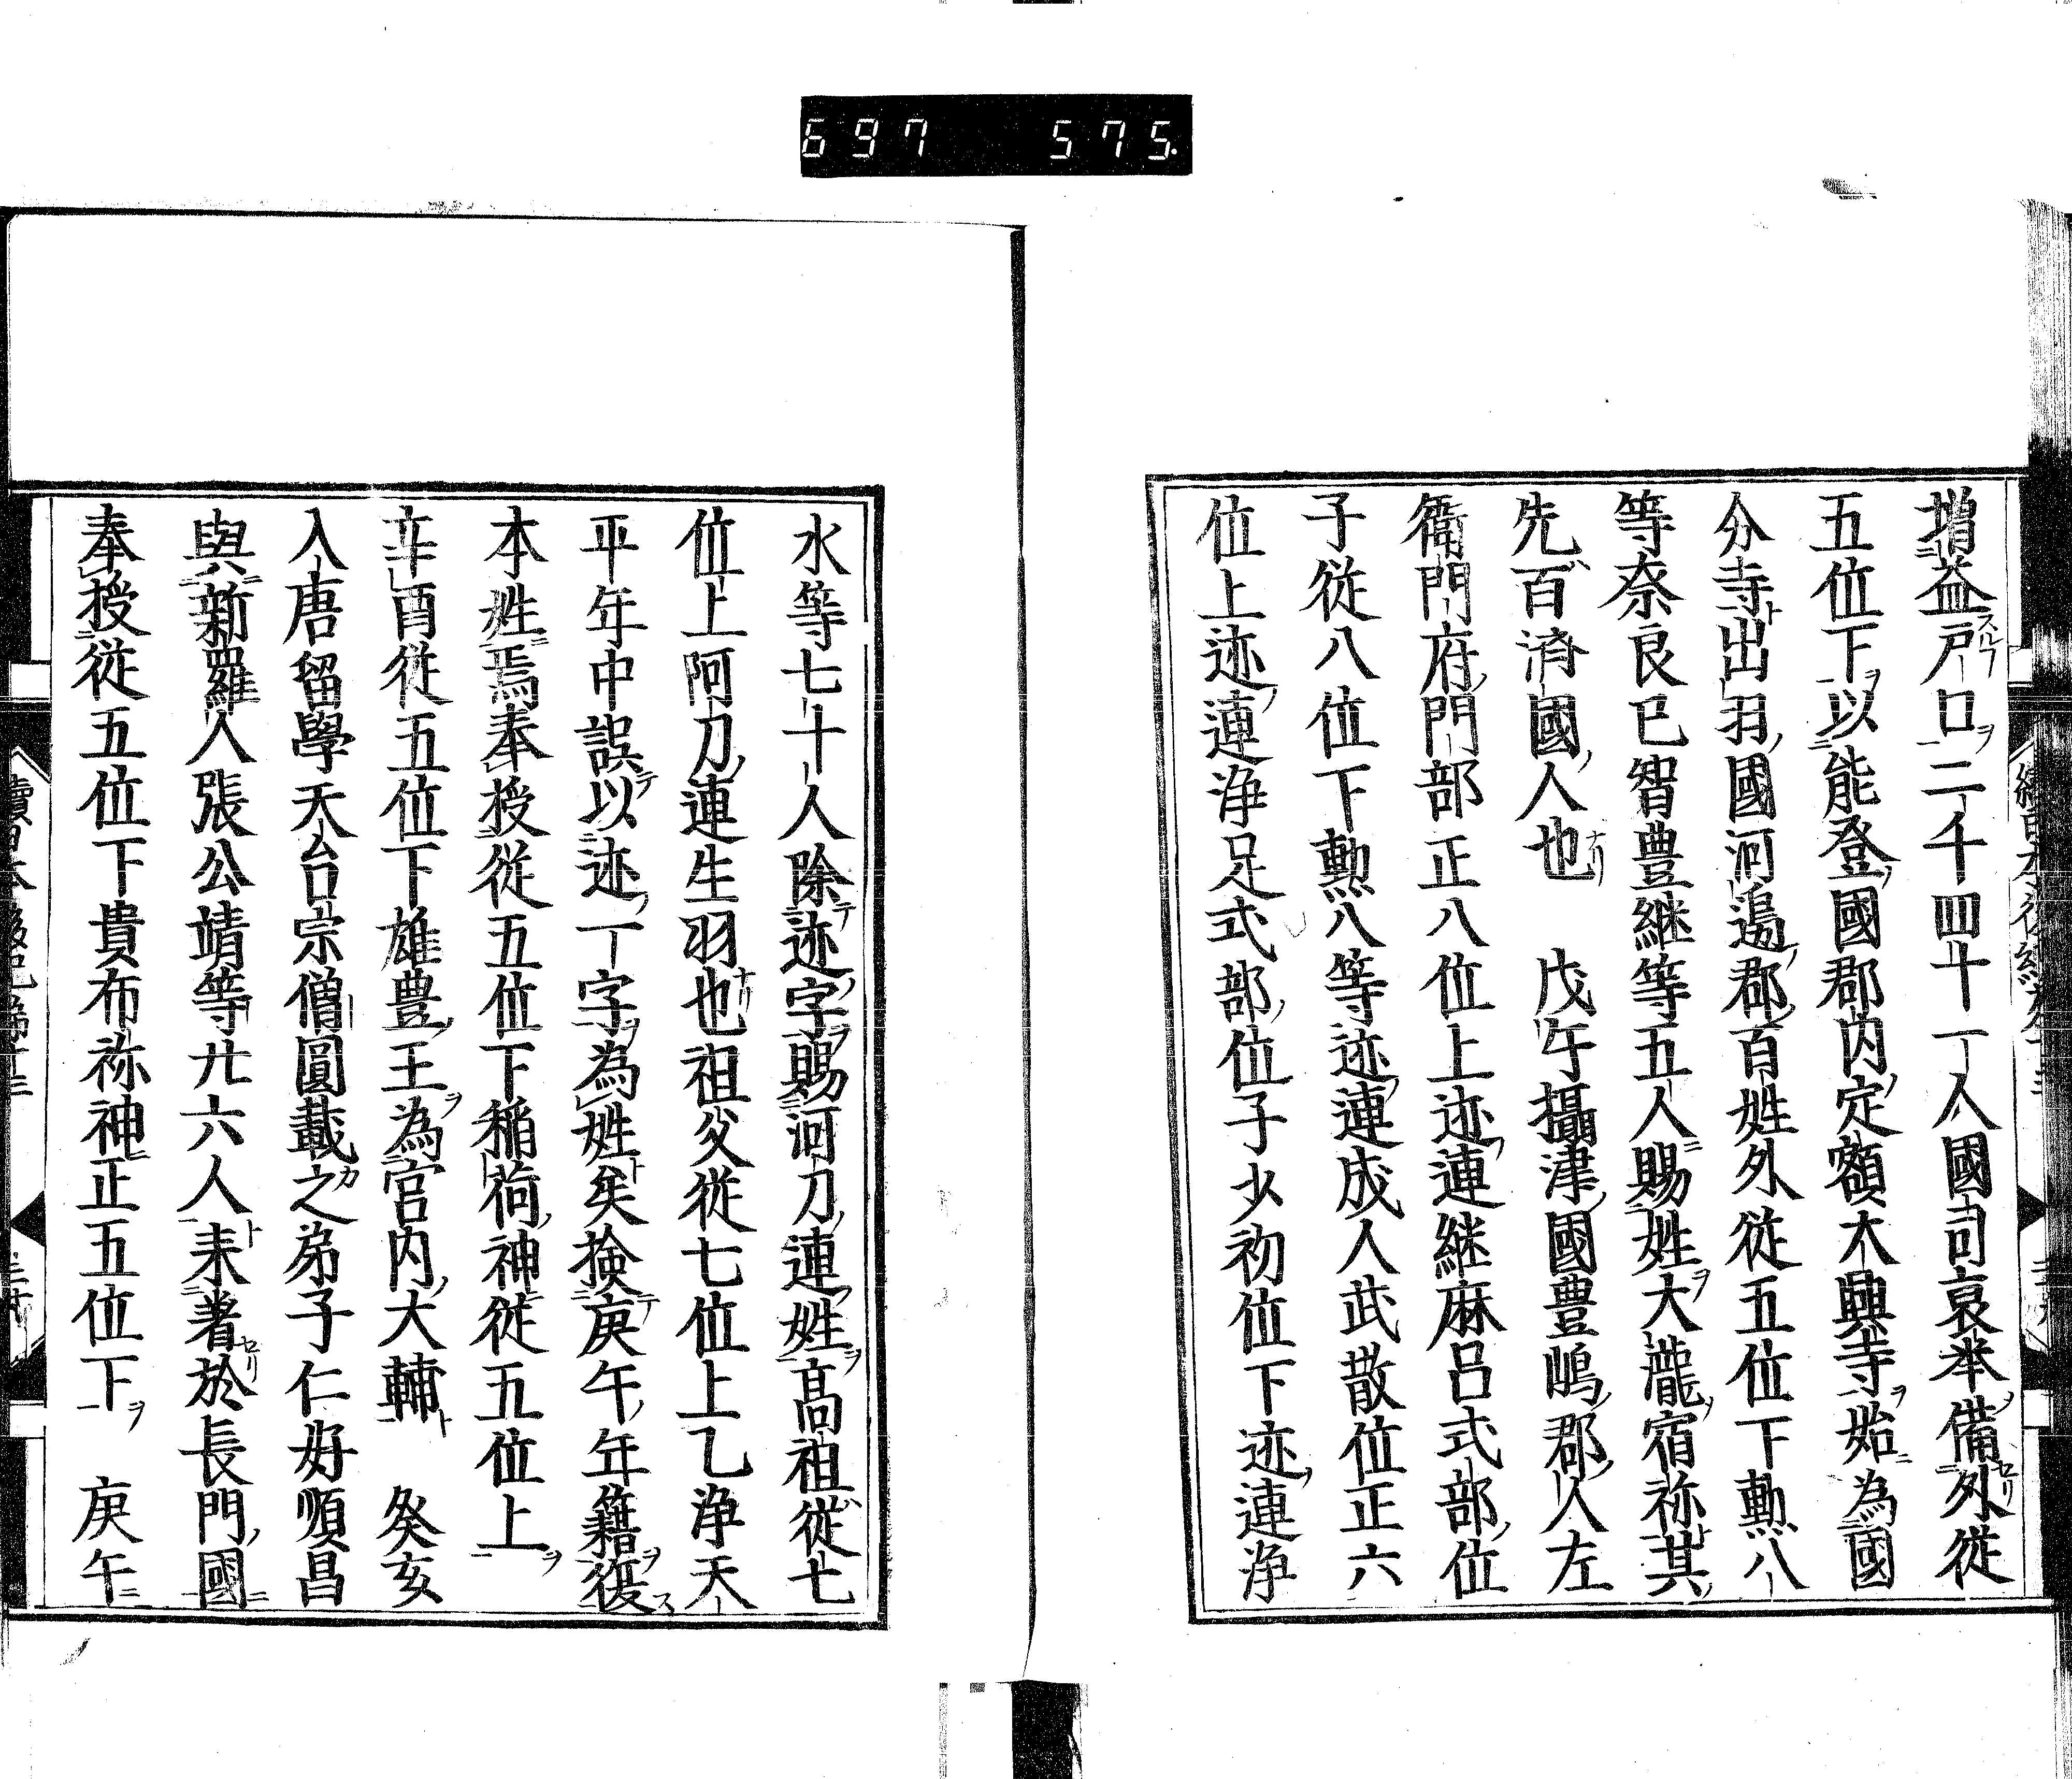 697 575.
増益戸口二千四十一人國司褒举備外從
五位下以能登國郡内定額大興寺始為國
分寺出羽國河邊郡百姓外從五位下勲八
等奈良已智豊継等五人賜姓大瀧宿祢其
先百済國人也 戊午攝津國豊嶋郡人左
衛門府門部正八位上迹連継麻呂式部位
子從八位下勲八等迹連成人武散位正六
位上迹連浄足式部位子少初位下迹連浄
水等七十人除迹字賜河刀連姓高祖從七
位上阿刀連生羽也祖父從七位上乙浄天
平年中誤以迹一字為姓矣検庚午年籍復
本姓焉奉授從五位下稲荷神從五位上
辛酉從五位下雄豊王為宮内大輔 癸亥
入唐留學天台宗僧圓載之弟子仁好順昌
與新羅人張公靖等廿六人来著於長門國
奉授從五位下貴布祢神正五位下 庚午